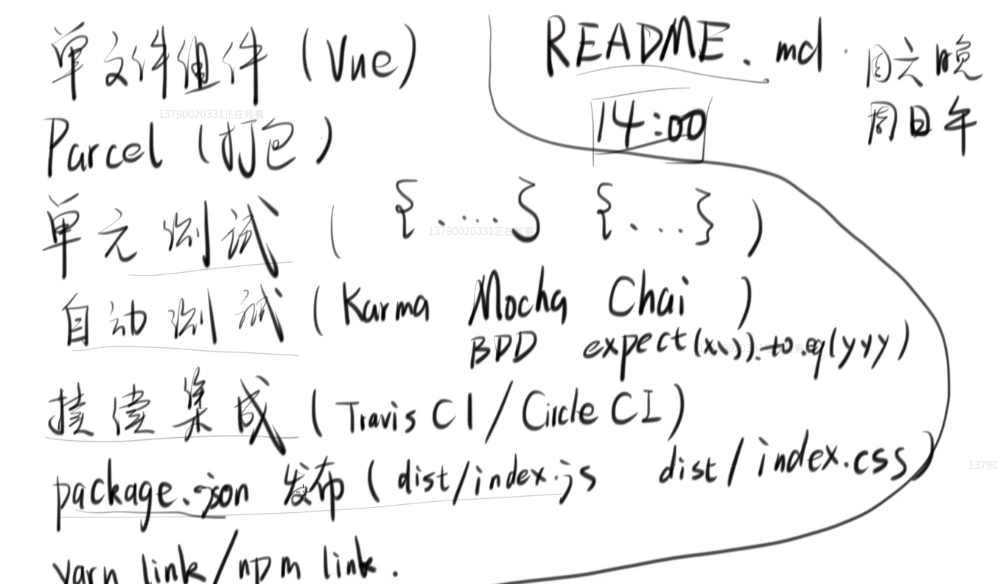 单文件组件 (Vue)
README.md
周六晚
14:00
周日午
13790020331正在观看
Parcel (打包)
单元测试 ( {....} {...} )
13790020331正在观看
自动测试 (Karma Mocha Chai )
BDD expect(xxx).to.eq(yyy)
持续集成 (Travis CI/Circle CI)
package.json 发布 (dist/index.js dist/index.css)
1379
yarn link/npm link.